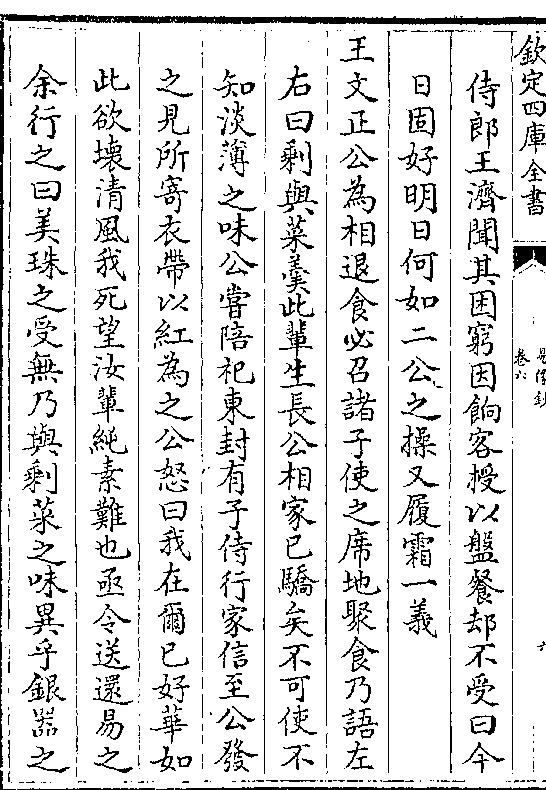 欽定四庫全書
卷六
侍郎王濟聞其困窮因餉客授以盤餐却不受曰今
日固好明日何如二公之操又履霜一義
王文正公為相退食必召諸子使之席地聚食乃語左
右曰剩與菜羮此輩生長公相家已驕矣不可使不
知淡薄之味公嘗陪祀東封有子侍行家信至公發
之見所寄衣帶以紅為之公怒曰我在爾已好華如
此欲壞清風我死望汝輩純素難也亟令送還易之
余行之曰美珠之受無乃與剩菜之味異乎銀器之